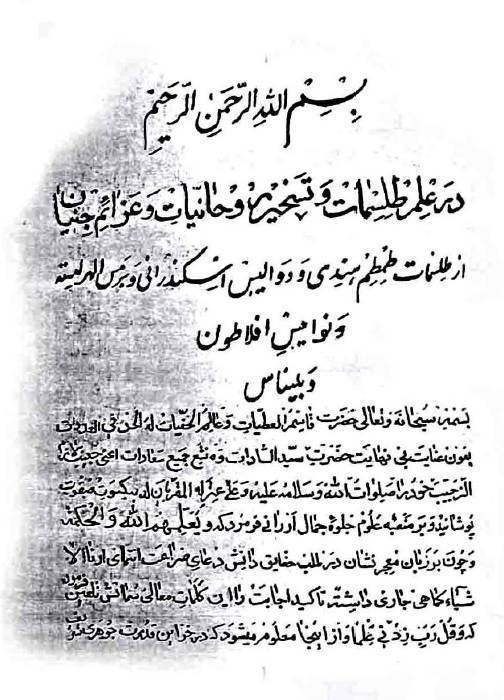 بِسْمِ اللهِ الرَّحْمنِ الرَّحيمِ
در علم طلسمات و تسخیر روحانیات و عزائم جنیان
از طلسمات طمطم هندی و دوالیس اسکندرانی و هرمس الهرامسه
و نوامیس افلاطون
و بلیناس
بسمه سبحانه و تعالی حضرت قاسم العطیات و عالم الخفیات
بعون عنایت بی نهایت حضرت سید السادات و منبع جمیع سعادات
خود را صلوات الله و سلامه علیه و علی عترته
پوشانید و بر منصه علوم جلوهٔ جمال ارزانی فرمود که و یعلمهم الله و الحکمة
و چون بر زبان معجز نشان در طلب حقایق دانش دعای ضراعت انتمای ارنا الا
شیاء کماهی جاری داشته تاکید اجابت را این کلمات معالی سماتش تلقین فرمود
که و قل رب زدنی علما و از اینجا معلوم میشود که در خزاین قدرت جوهری